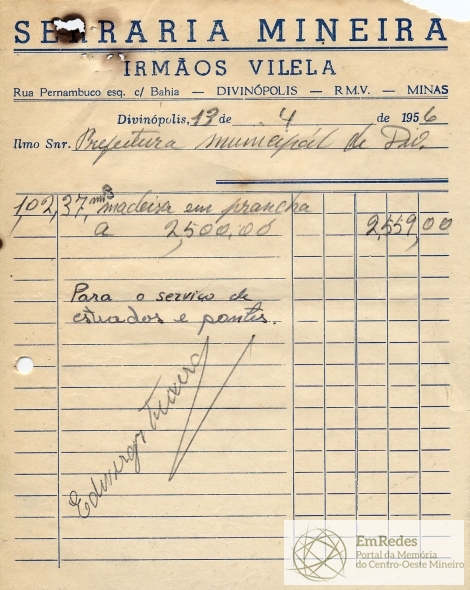 SERRARIA MINEIRA
IRMÃOS VILELA
Rua Pernambuco esq. c/ Bahia — DIVINÓPOLIS — R M.V. — MINAS
Divinópolis, 13 de 4 de 1956
Ilmo Snr. Prefeitura municipál de Div.
1,02,37, m3 madeira em prancha
a 2,500,00 2,559,00
Para o serviço de
estrados e pontes.
EmRedes
Portal da Memória
do Centro-Oeste Mineiro